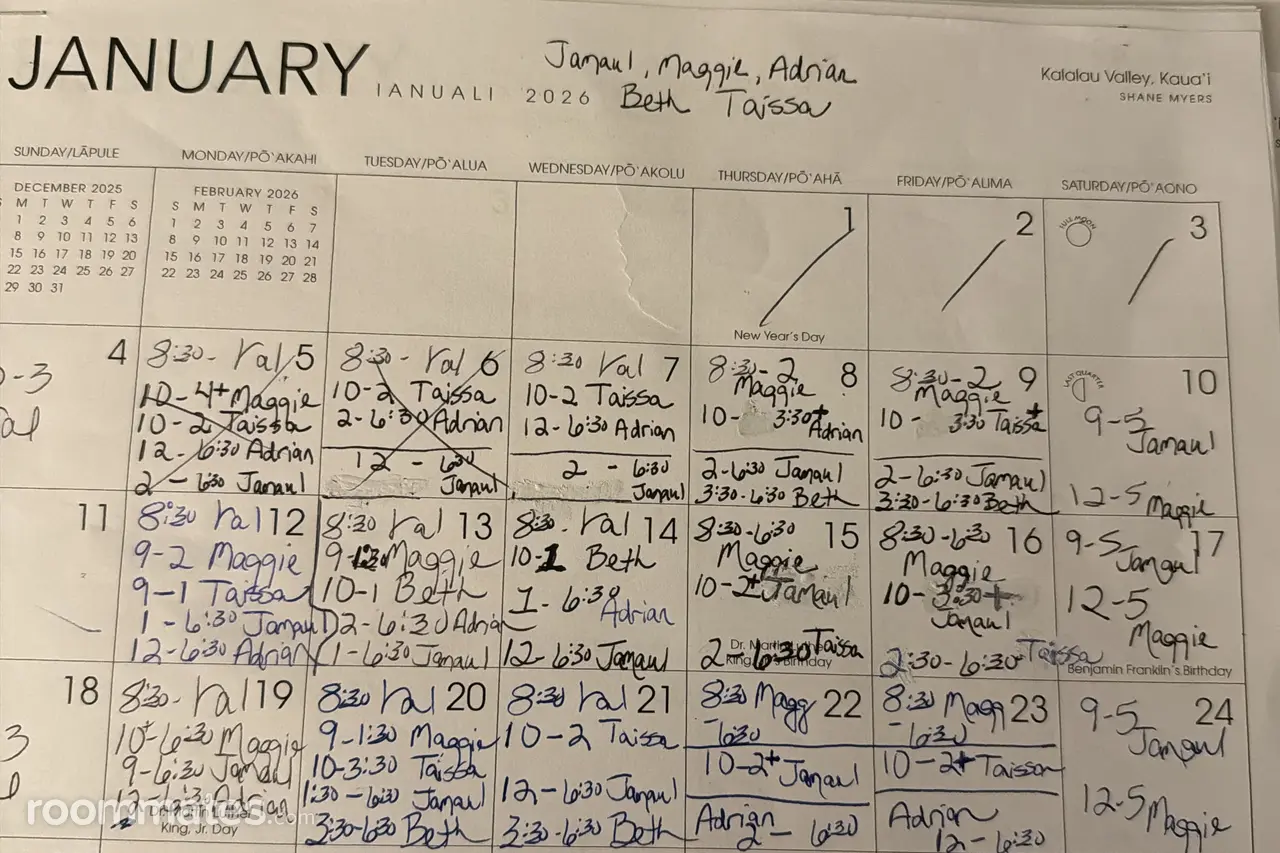 JANUARY
IANUALI 2026
Jamaul, Maggie, Adrian
Beth Taissa
Kalalau Valley, Kaua'i
SHANE MYERS
SUNDAY/LĀPULE
MONDAY/PŌ'AKAHI
TUESDAY/PŌ'ALUA
WEDNESDAY/PŌ'AKOLU
THURSDAY/PŌ'AHĀ
FRIDAY/PŌ'ALIMA
SATURDAY/PŌ'AONO
DECEMBER 2025
S M T W T F S
1 2 3 4 5 6
8 9 10 11 12 13
15 16 17 18 19 20
22 23 24 25 26 27
29 30 31
FEBRUARY 2026
S M T W T F S
1 2 3 4 5 6 7
8 9 10 11 12 13 14
15 16 17 18 19 20 21
22 23 24 25 26 27 28
3
1
New Year's Day
2
FULL MOON
3
4
-3
al
8:30- Val 5
10-4+ Maggie
10-2 Taissa
12-6:30 Adrian
2-6:30 Jamaul
8:30- Val 6
10-2 Taissa
2-6:30 Adrian
12-6:30
Jamaul
8:30 Val 7
10-2 Taissa
12-6:30 Adrian
2-6:30
Jamaul
8:30-2 8
Maggie
10- 3:30+
Adrian
2-6:30 Jamaul
3:30-6:30 Beth
8:30-2 9
Maggie
10- 3:30 Taissa+
2-6:30 Jamaul
3:30-6:30 Beth
LAST QUARTER
10
9-5
Jamaul
12-5 Maggie
11
8:30 Val 12
9-2 Maggie
9-1 Taissa
1-6:30 Jamaul
12-6:30 Adrian
8:30 Val 13
9- Maggie
10-1 Beth
2-6:30 Adrian
1-6:30 Jamaul
8:30- Val 14
10-1 Beth
1-6:30
Adrian
12-6:30 Jamaul
8:30-6:30 15
Maggie
10-2+ Jamaul
2-6:30 Taissa
Dr. Martin
King, Birthday
8:30-6:30 16
Maggie
10-3:30+
Jamaul
2:30-6:30 Taissa
9-5 Jamaul 17
12-5
Maggie
Benjamin Franklin's Birthday
18
3
8:30- Val 19
10+-6:30 Maggie
9-6:30 Jamaul
12-6:30 Adrian
King, Jr. Day
8:30 Val 20
9-1:30 Maggie
10-3:30 Taissa
1:30-6:30 Jamaul
3:30-6:30 Beth
8:30 Val 21
10-2 Taissa
12-6:30 Jamaul
3:30-6:30 Beth
8:30 Magg 22
-6:30
10-2+ Jamaul
Adrian
2-6:30
8:30 Magg 23
-6:30
10-2+ Taissa
Adrian
12-6:30
9-5 24
Jamaul
12-5 Maggie
roommates.com